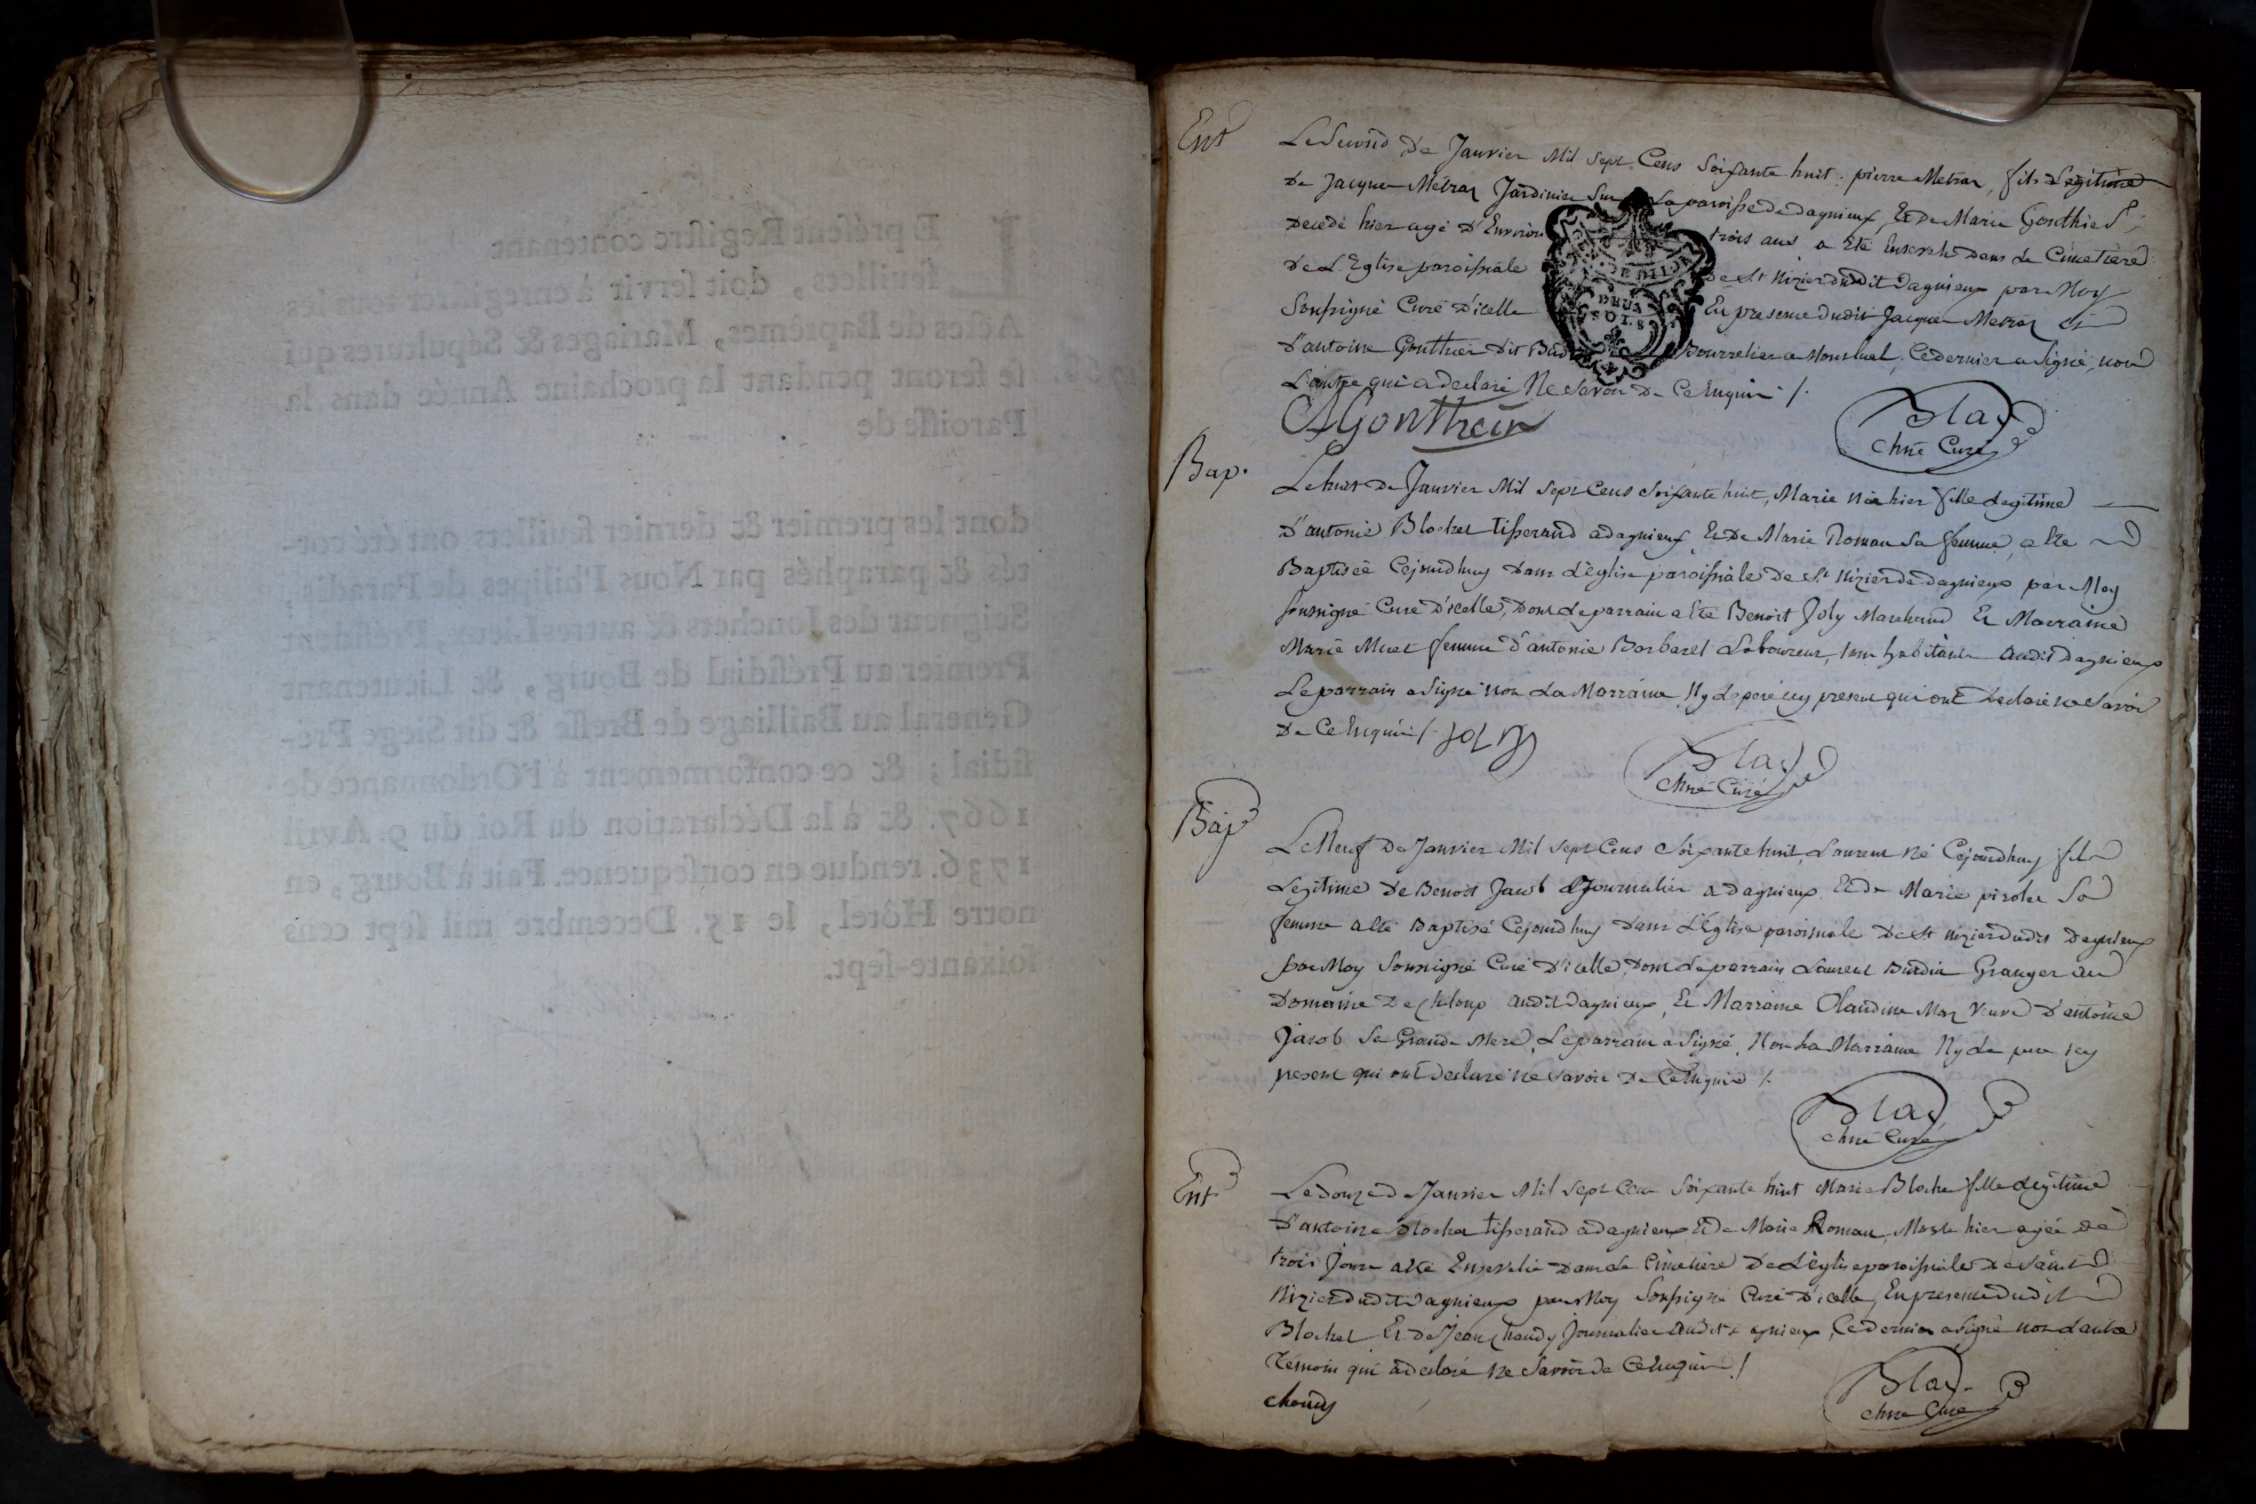 E présent Registre contenant
feuillets, doit servir à enregistrer tous les
Actes de Baptêmes, Mariages & Sépultures qui
se feront pendant la prochaine Année dans la
Paroisse de
dont les premier & dernier feuillets ont été cot-
tés & paraphés par Nous Philipes de Paradis,
Seigneur des Jonchets & autres Lieux, Président
Premier au Présidial de Bourg, & Lieutenant
General au Bailliage de Bresse & dit Siege Pre-
sidial ; & ce conformement à l'Ordonnance de
1667. & à la Déclaration du Roi du 9. Avril
1736. rendue en consequence. Fait à Bourg, en
notre Hôtel, le 15. Decembre mil sept cens
soixante sept.
Ent
Le Second De Janvier Mil Sept Cens Soixante huit. pierre Metraz, fils Legitime
De Jacque Métraz Jardinier Sur La paroisse de dagnieux, Et De Marie Gonthier
Decedé hier agé D'Environ trois ans a Eté Enseveli Dans Le Cimetiere
De L'Eglise paroissiale De St Nizier dudit Dagnieux par Moy
Soussigné Curé D'icelle En presence dudit Jacque Metraz Et
D'antoine Gonthier Dit Bourrelier a Montluel, Ce dernier a Signé, non
L'autre qui a declaré Ne Savoir De Ce Enquis /.
DEUX
SOLS
AGonthier
Blaz
Chne Curé
Bap.
Le huit De Janvier Mil Sept Cens Soixante huit, Marie Née hier fille Legitime
D'antoine Blochet tisserand a dagnieux, Et De Marie Roman Sa femme, a Ete
Baptiséé Cejourdhuy Dans L'église paroissiale De St Nizier de dagnieux par Moy
soussigné Curé D'icelle, Dont Le parrain a Ete Benoit Joly Marchand Et Marraine
Marie femme D'antoine Barbaret Laboureur, tous habitants audit Dagnieux
Le parrain a Signé non La Marraine Ny Le pere icy present qui ont Declaré ne Savoir
De Ce Enquis /. JOLY
Blaz
Chne Curé
Bap
Le Neuf De Janvier Mil Sept Cens Soixante huit Laurent Né Cejourdhuy fils
Legitime De Benoit Jacob Journalier a dagnieux Et De Marie Sa
femme a Eté Baptisé Cejourdhuy Dans L'Eglise paroissiale De St nizier dudit Dagnieux
par Moy Soussigné Curé D'icelle, Dont Le parrain Laurent Burdin Granger au
Domaine De audit Dagnieux, Et Marraine Claudine Veuve D'antoine
Jacob Sa Grande Mere, Le parrain a Signé, Non La Marraine Ny Le pere icy
present qui ont Declaré Ne Savoir De Ce Enquis /.
Blaz
Chne Curé
Ent
Le Douze De Janvier Mil Sept Cens Soixante huit Marie Blochet fille Legitime
D'antoine Blochet tisserand a dagnieux Et De Marie Roman, Morte hier agée De
trois Jours a Eté Ensevelie Dans Le Cimetiere De L'église paroissiale De Saint
Nizier dudit Dagnieux par Moy Soussigné Curé D'icelle, En presence dudit
Blochet Et De Jean Chaudy Journalier Audit Dagnieux, Ce dernier a Signé non L'autre
Témoin qui a declaré Ne Savoir De Ce Enquis /.
Chaudy
Blaz
Chne Curé